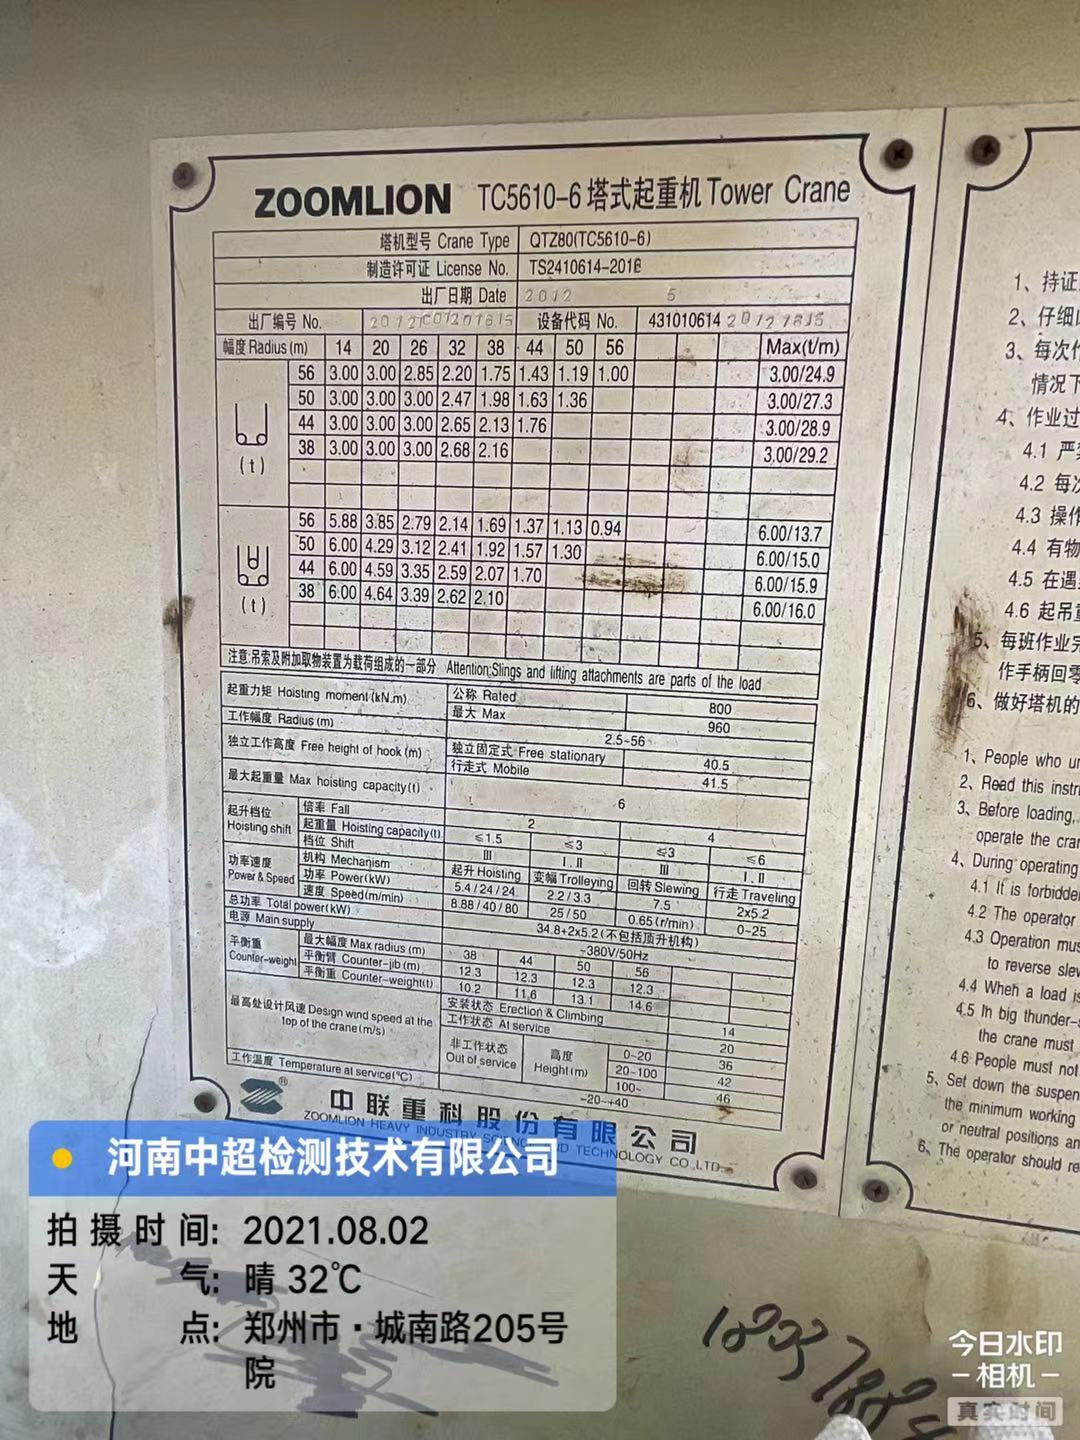 ZOOMLION TC5610-6塔式起重机 Tower Crane
塔机型号 Crane Type QTZ80(TC5610-6)
制造许可证 License No. TS2410614-201
出厂日期 Date 2012 5
出厂编号 No. 设备代码 No. 431010614
幅度 Radius (m) 14 20 26 32 38 44 50 56 Max(t/m)
56 3.00 3.00 2.85 2.20 1.75 1.43 1.19 1.00 3.00/24.9
50 3.00 3.00 3.00 2.47 1.98 1.63 1.36 3.00/27.3
44 3.00 3.00 3.00 2.65 2.13 1.76 3.00/28.9
38 3.00 3.00 3.00 2.68 2.16 3.00/29.2
(t)
56 5.88 3.85 2.79 2.14 1.69 1.37 1.13 0.94 6.00/13.7
50 6.00 4.29 3.12 2.41 1.92 1.57 1.30 6.00/15.0
44 6.00 4.59 3.35 2.59 2.07 1.70 6.00/15.9
38 6.00 4.64 3.39 2.62 2.10 6.00/16.0
(t)
注意:吊索及附加取物装置为载荷组成的一部分 Attention:Slings and lifting attachments are parts of the load
起重力矩 Hoisting moment (kN.m) 公称 Rated 800
最大 Max 960
工作幅度 Radius (m) 2.5~56
独立工作高度 Free height of hook (m) 独立固定式 Free stationary 40.5
行走式 Mobile 41.5
最大起重量 Max hoisting capacity(t) 6
起升档位 Hoisting shift 倍率 Fall 2 4
起重量 Hoisting capacity(t) ≤1.5 ≤3 ≤3 ≤6
档位 Shift III I.II III I.II
功率速度 Power & Speed 机构 Mechanism 起升 Hoisting 变幅 Trolleying 回转 Slewing 行走 Traveling
功率 Power(kW) 5.4/24/24 2.2/3.3 7.5 2x5.2
速度 Speed(m/min) 8.88/40/80 25/50 0.65 (r/min) 0~25
总功率 Total power(kW) 34.8+2x5.2(不包括顶升机构)
电源 Main supply ~380V/50Hz
平衡重 Counter-weight 最大幅度 Max radius (m) 38 44 50 56
平衡臂 Counter-jib (m) 12.3 12.3 12.3 12.3
平衡重 Counter-weight(t) 10.2 11.6 13.1 14.6
最高处设计风速 Design wind speed at the top of the crane(m/s) 安装状态 Erection & Climbing 14
工作状态 At service 20
非工作状态 Out of service 高度 Height(m) 0~20 36
20~100 42
100~ 46
工作温度 Temperature at service(℃) -20~+40
®
中联重科股份有限公司
ZOOMLION HEAVY INDUSTRY SCIENCE AND TECHNOLOGY CO.,LTD.
1、持证
2、仔细
3、每次作
情况下
4、作业过
4.1 严
4.2 每次
4.3 操作
4.4 有物
4.5 在遇
4.6 起吊重
5、每班作业完
作手柄回零
6、做好塔机的
1、People who
2、Read this
3、Before loading,
operate the
4、During operating
4.1 It is
4.2 The operator
4.3 Operation
to reverse
4.4 When a load is
4.5 In big
the crane must
4.6 People must not
5、Set down the
the minimum working
or neutral positions
6、The operator should
河南中超检测技术有限公司
拍摄时间: 2021.08.02
天气: 晴 32℃
地点: 郑州市·城南路205号
院
今日水印
相机
真实时间